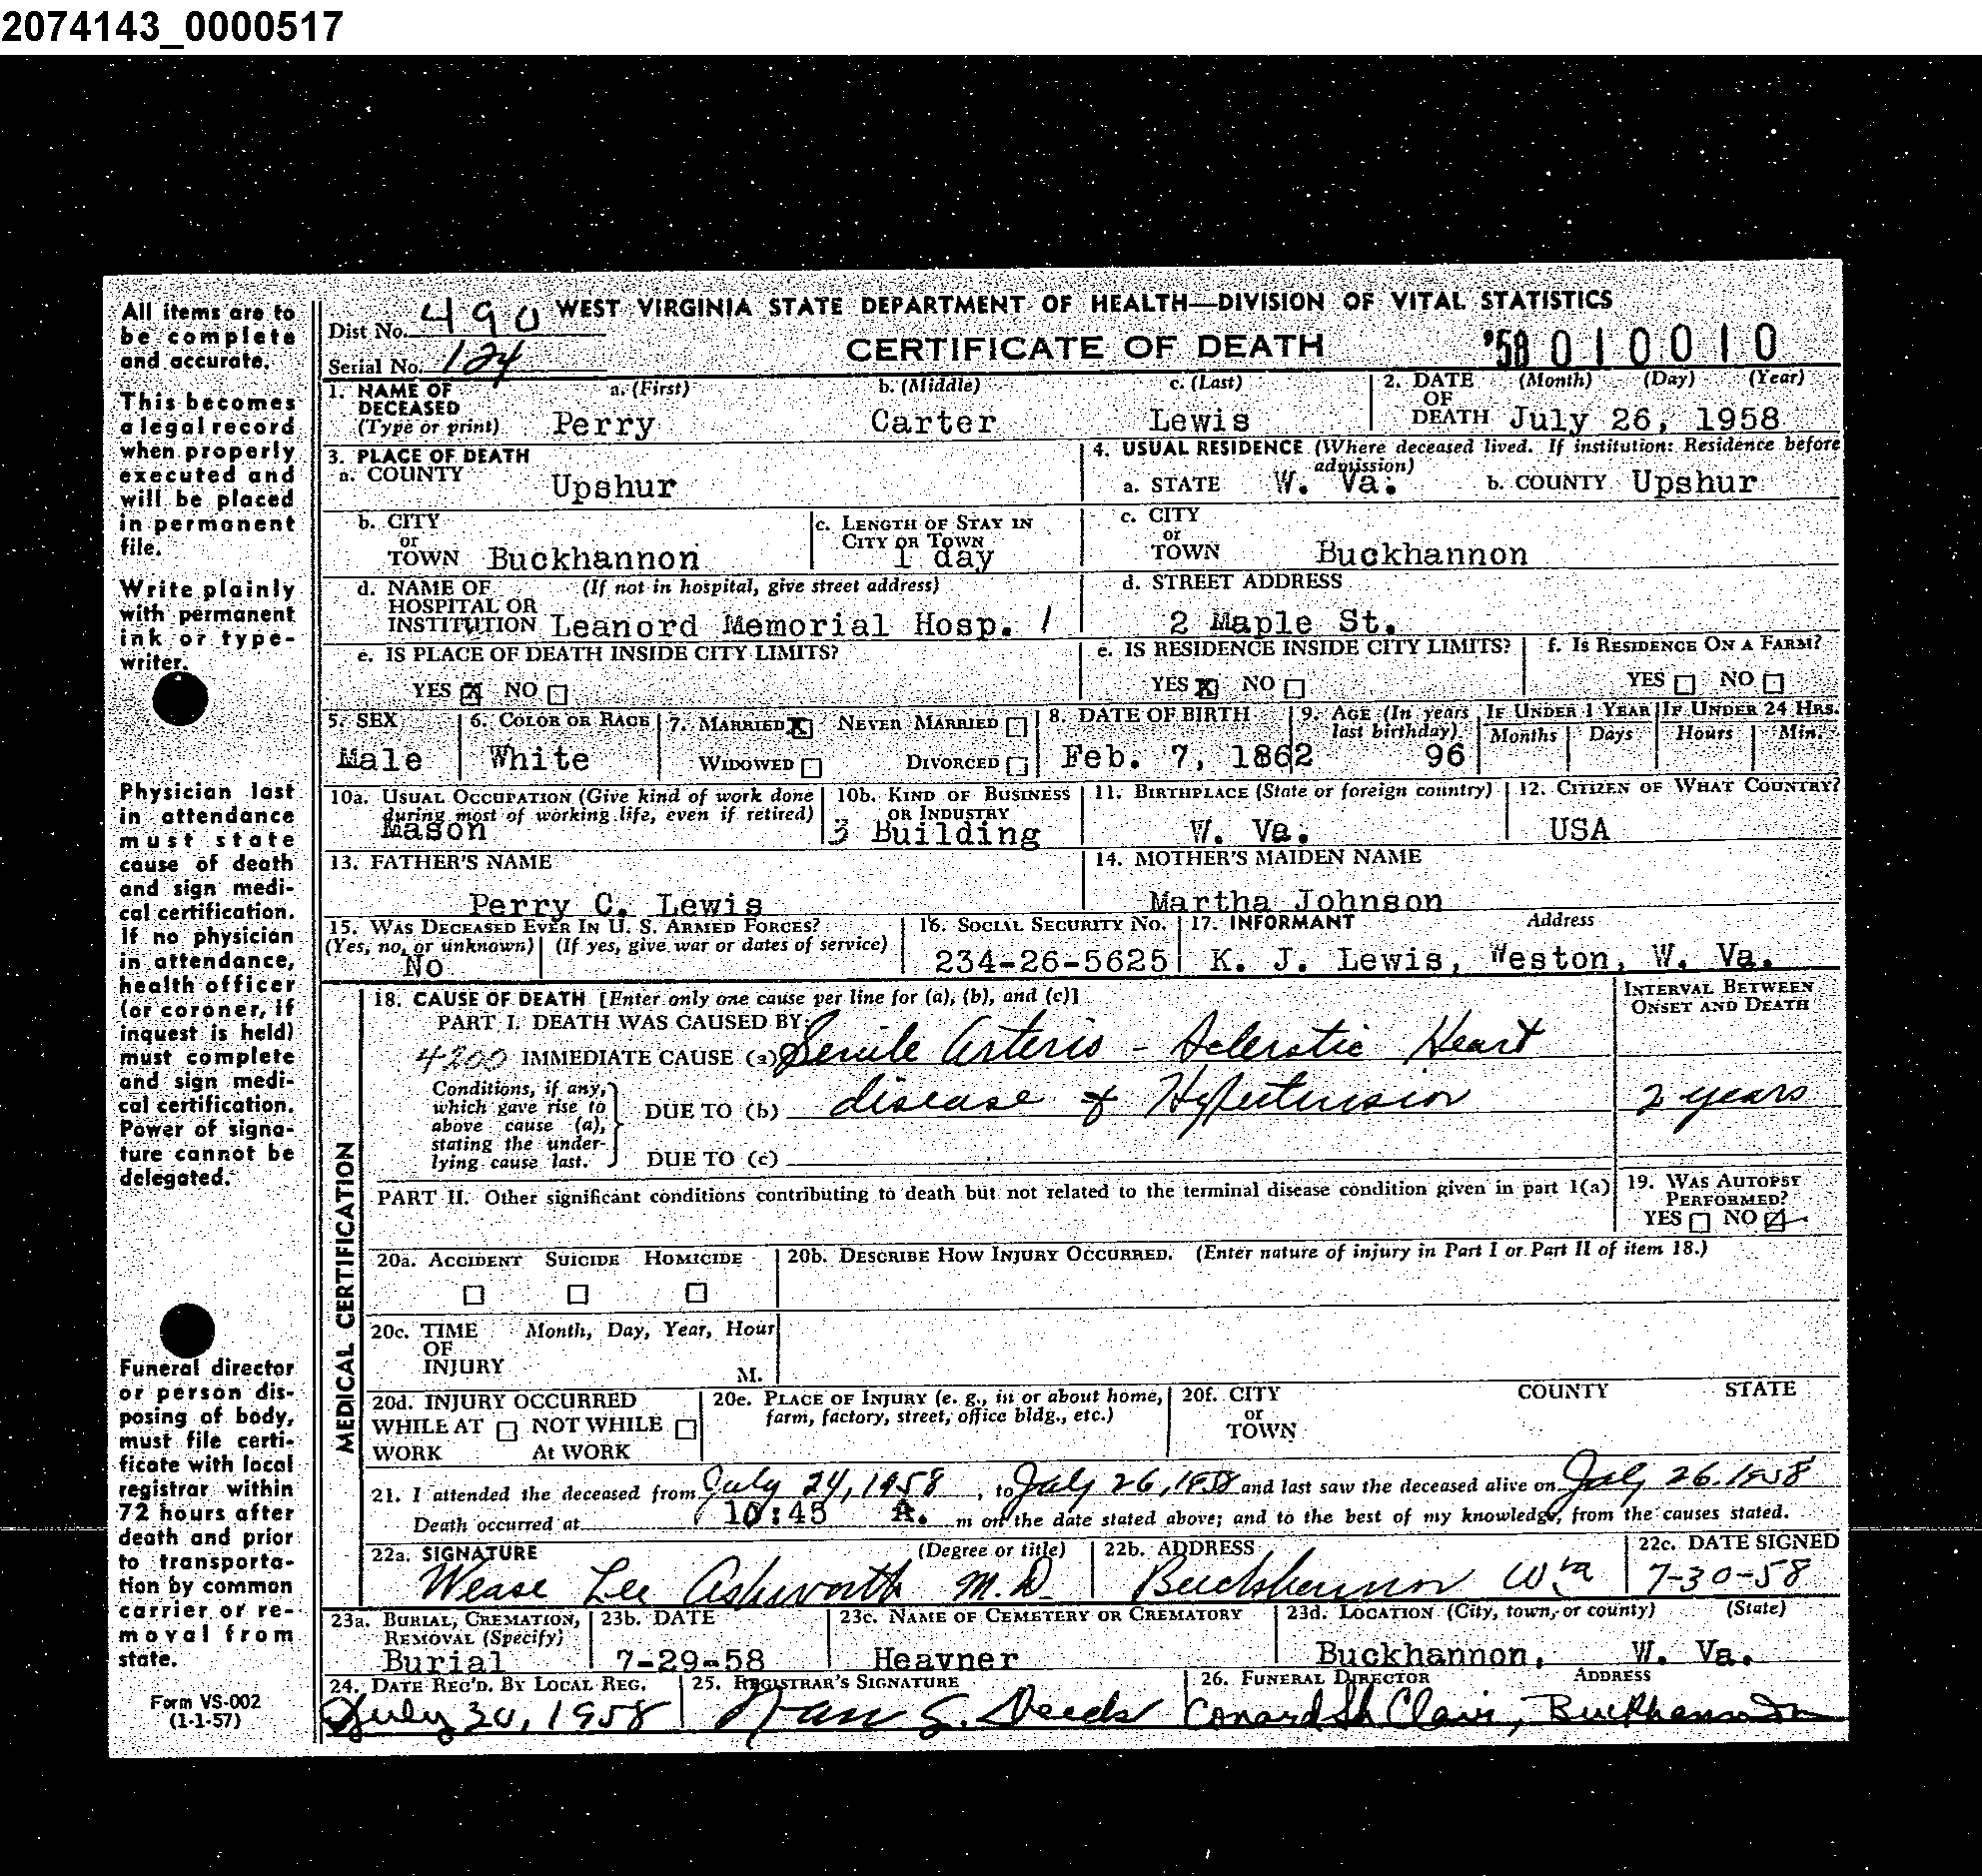 2074143_0000517
All items are to
be complete
and accurate.
This becomes
a legal record
when properly
executed and
will be placed
in permanent
file.
Write plainly
with permanent
ink or type-
writer.
Physician last
in attendance
must state
cause of death
and sign medi-
cal certification.
If no physician
in attendance,
health officer
(or coroner, if
inquest is held)
must complete
and sign medi-
cal certification.
Power of signa-
ture cannot be
delegated.
Funeral director
or person dis-
posing of body,
must file certi-
ficate with local
registrar within
72 hours after
death and prior
to transporta-
tion by common
carrier or re-
moval from
state.
Form VS-002
(1-1-57)
WEST VIRGINIA STATE DEPARTMENT OF HEALTH—DIVISION OF VITAL STATISTICS
Dist No. 490
CERTIFICATE OF DEATH '58 010010
Serial No. 124
1. NAME OF DECEASED (Type or print) a. (First) b. (Middle) c. (Last)
Perry Carter Lewis
2. DATE OF DEATH (Month) (Day) (Year)
July 26, 1958
3. PLACE OF DEATH
a. COUNTY Upshur
4. USUAL RESIDENCE (Where deceased lived. If institution: Residence before admission)
a. STATE W. Va. b. COUNTY Upshur
b. CITY or TOWN Buckhannon
c. LENGTH OF STAY IN CITY OR TOWN 1 day
c. CITY or TOWN Buckhannon
d. NAME OF HOSPITAL OR INSTITUTION (If not in hospital, give street address)
Leanord Memorial Hosp. 1
d. STREET ADDRESS
2 Maple St.
e. IS PLACE OF DEATH INSIDE CITY LIMITS?
YES X NO
e. IS RESIDENCE INSIDE CITY LIMITS?
YES X NO
f. IS RESIDENCE ON A FARM?
YES NO
5. SEX
Male
6. COLOR OR RACE
White
7. MARRIED X NEVER MARRIED
WIDOWED DIVORCED
8. DATE OF BIRTH
Feb. 7, 1862
9. AGE (In years last birthday)
96
IF UNDER 1 YEAR
Months Days
IF UNDER 24 HRS.
Hours Min.
10a. USUAL OCCUPATION (Give kind of work done during most of working life, even if retired)
Mason
10b. KIND OF BUSINESS OR INDUSTRY
3 Building
11. BIRTHPLACE (State or foreign country)
W. Va.
12. CITIZEN OF WHAT COUNTRY?
USA
13. FATHER'S NAME
Perry C. Lewis
14. MOTHER'S MAIDEN NAME
Martha Johnson
15. WAS DECEASED EVER IN U. S. ARMED FORCES?
(Yes, no, or unknown) (If yes, give war or dates of service)
No
16. SOCIAL SECURITY NO.
234-26-5625
17. INFORMANT Address
K. J. Lewis, Weston, W. Va.
MEDICAL CERTIFICATION
18. CAUSE OF DEATH [Enter only one cause per line for (a), (b), and (c)]
INTERVAL BETWEEN ONSET AND DEATH
PART I. DEATH WAS CAUSED BY:
4200 IMMEDIATE CAUSE (a) Senile Arterio - Sclerotic Heart
Conditions, if any, which gave rise to above cause (a), stating the underlying cause last.
DUE TO (b) disease & Hypertension 2 years
DUE TO (c)
PART II. Other significant conditions contributing to death but not related to the terminal disease condition given in part 1(a)
19. WAS AUTOPSY PERFORMED?
YES NO
20a. ACCIDENT SUICIDE HOMICIDE
20b. DESCRIBE HOW INJURY OCCURRED. (Enter nature of injury in Part I or Part II of item 18.)
20c. TIME OF INJURY Month, Day, Year, Hour
M.
20d. INJURY OCCURRED
WHILE AT WORK NOT WHILE At WORK
20e. PLACE OF INJURY (e. g., in or about home, farm, factory, street, office bldg., etc.)
20f. CITY or TOWN COUNTY STATE
21. I attended the deceased from July 24, 1958, to July 26, 1958 and last saw the deceased alive on July 26. 1958
Death occurred at 10:45 A. m on the date stated above; and to the best of my knowledge, from the causes stated.
22a. SIGNATURE (Degree or title)
Wease Lee Ashworth M.D.
22b. ADDRESS
Buckhannon W Va
22c. DATE SIGNED
7-30-58
23a. BURIAL, CREMATION, REMOVAL (Specify)
Burial
23b. DATE
7-29-58
23c. NAME OF CEMETERY OR CREMATORY
Heavner
23d. LOCATION (City, town, or county) (State)
Buckhannon, W. Va.
24. DATE REC'D. BY LOCAL REG.
July 30, 1958
25. REGISTRAR'S SIGNATURE
S. Deeds
26. FUNERAL DIRECTOR ADDRESS
Conard St Clair,